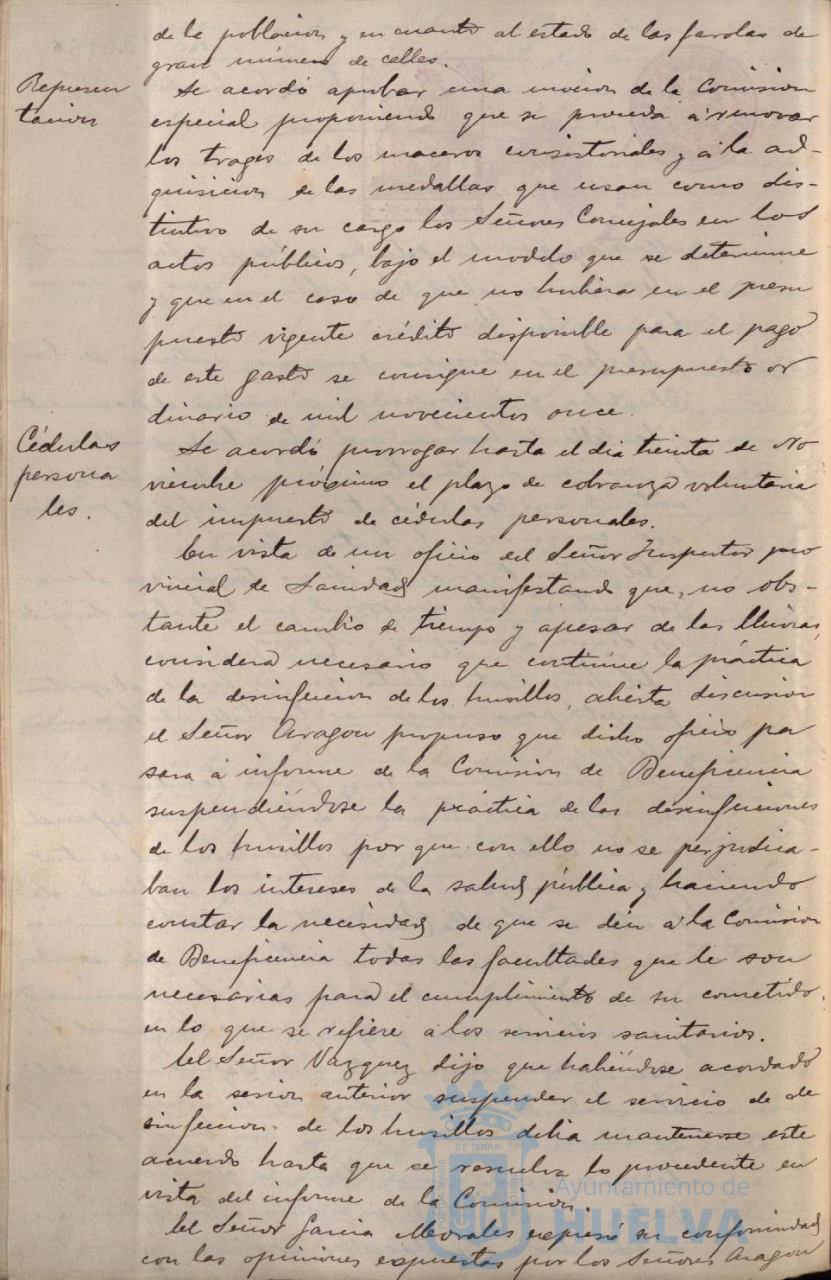 de la poblacion y en cuanto al estado de las farolas de
gran número de calles.
Represen
tacion
Se acordó aprobar una mocion de la Comision
especial proponiendo que se proceda a renovar
los trages de los maceros consistoriales y á la ad-
quisicion de las medallas que usan como dis-
tintivo de su cargo los Señores Concejales en los
actos públicos, bajo el modelo que se determine
y que en el caso de que no hubiera en el presu
puesto vigente crédito disponible para el pago
de este gasto se consigne en el presupuesto or
dinario de mil novecientos once.
Cédulas
persona
les.
Se acordó prorrogar hasta el dia treinta de No
viembre próximo el plazo de cobranza voluntaria
del impuesto de cédulas personales.
En vista de un oficio del Señor Inspector pro
vincial de Sanidad manifestando que, no obs-
tante el cambio de tiempo y apesar de las lluvias,
considera necesario que continúe la práctica
de la desinfeccion de los husillos, abierta discusion
el Señor Aragon propuso que dicho oficio pa
sara á informe de la Comision de Beneficencia
suspendiéndose la práctica de las desinfecciones
de los husillos por que con ello no se perjudica-
ban los intereses de la salud pública y haciendo
constar la necesidad de que se den á la Comision
de Beneficencia todas las facultades que le son
necesarias para el cumplimiento de su cometido
en lo que se refiere á los servicios sanitarios.
El Señor Vazquez dijo que habiéndose acordado
en la sesion anterior suspender el servicio de de
sinfeccion de los husillos debia mantenerse este
acuerdo hasta que se resuelva lo procedente en
vista del informe de la Comision.
El Señor Garcia Morales expresó su conformidad
con las opiniones expuestas por los Señores Aragon
Ayuntamiento de
HUELVA